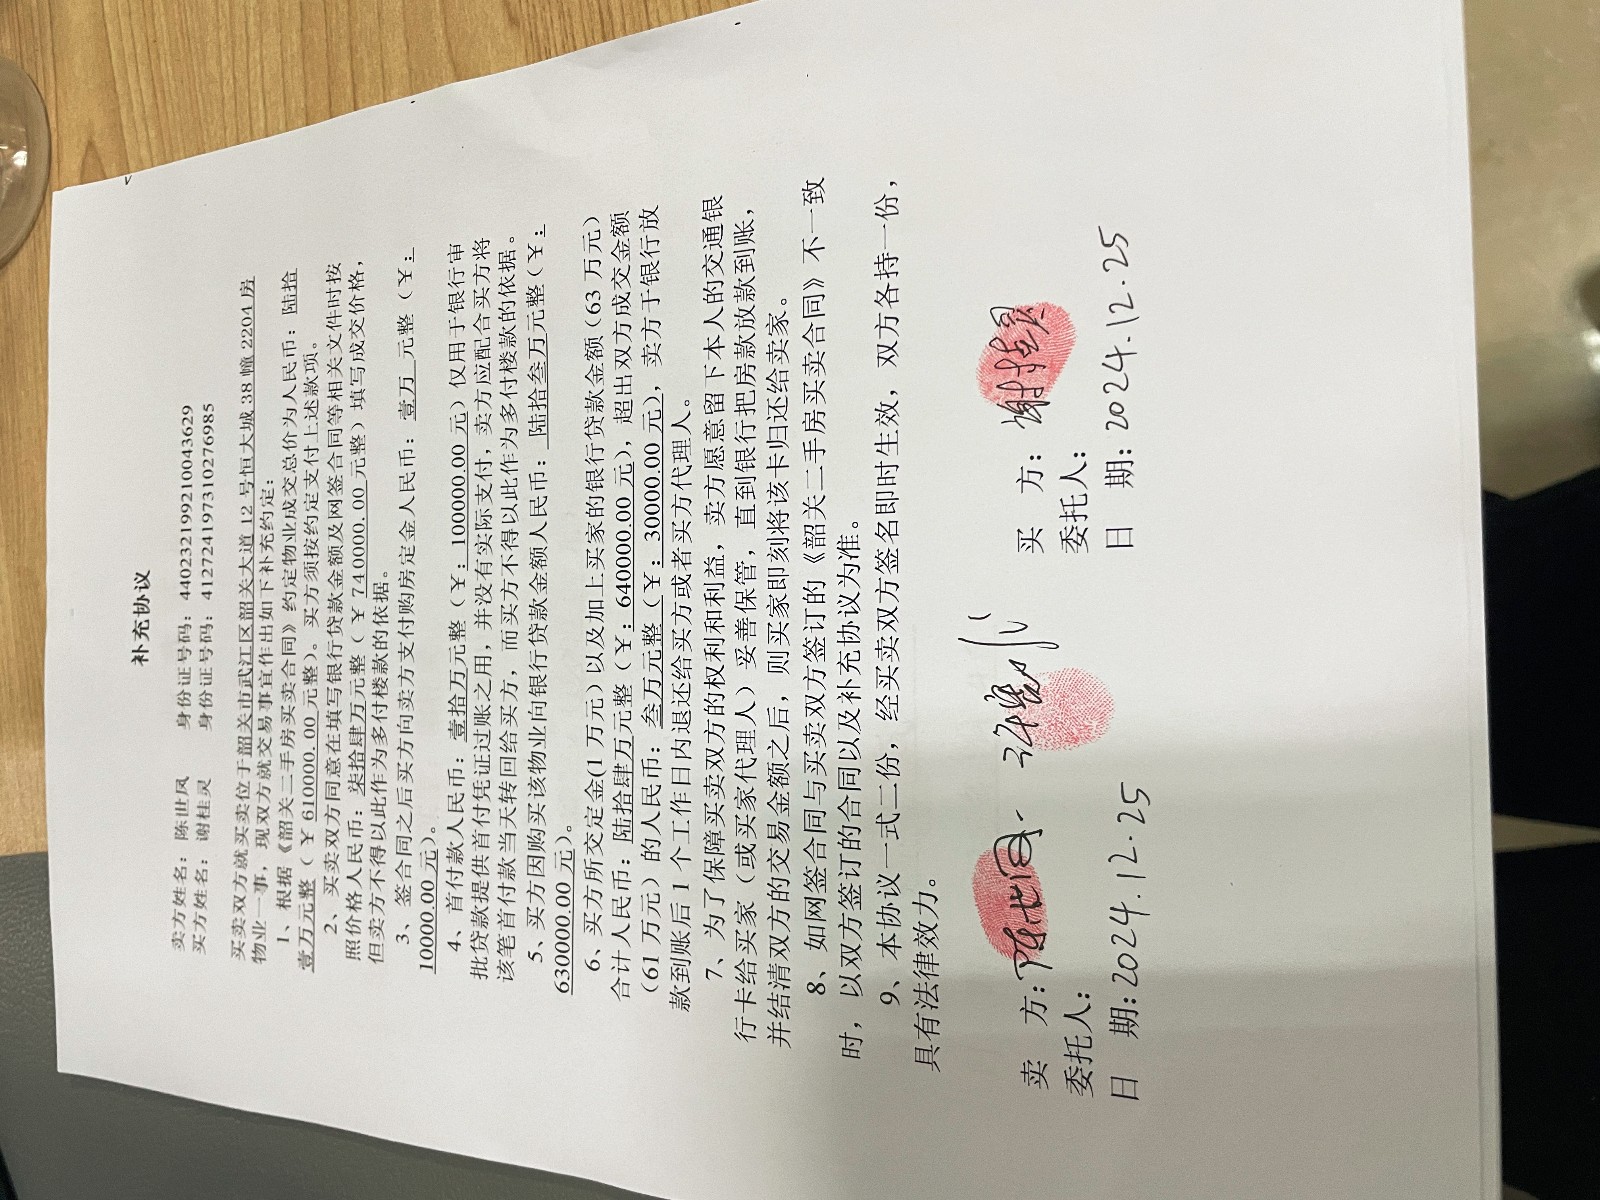 补充协议
卖方姓名：陈世凤 身份证号码：440232199210043629
买方姓名：谢桂灵 身份证号码：412724197310276985
买卖双方就买卖位于韶关市武江区韶关大道 12 号恒大城 38 幢 2204 房
物业一事，现双方就交易事宜作出如下补充约定：
1、根据《韶关二手房买卖合同》约定物业成交总价为人民币：陆拾
壹万元整（￥610000.00 元整）。买方须按约定支付上述款项。
2、买卖双方同意在填写银行贷款金额及网签合同等相关文件时按
照价格人民币：柒拾肆万元整（￥740000.00 元整）填写成交价格，
但卖方不得以此作为多付楼款的依据。
3、签合同之后买方向卖方支付购房定金人民币：壹万 元整（￥：
10000.00 元）。
4、首付款人民币：壹拾万元整（￥：100000.00 元）仅用于银行审
批贷款提供首付凭证过账之用，并没有实际支付，卖方应配合买方将
该笔首付款当天转回给买方，而买方不得以此作为多付楼款的依据。
5、买方因购买该物业向银行贷款金额人民币：陆拾叁万元整（￥：
630000.00 元）。
6、买方所交定金(1 万元）以及加上买家的银行贷款金额（63 万元）
合计人民币：陆拾肆万元整（￥：640000.00 元），超出双方成交金额
（61 万元）的人民币：叁万元整（￥：30000.00 元），卖方于银行放
款到账后 1 个工作日内退还给买方或者买方代理人。
7、为了保障买卖双方的权利和利益，卖方愿意留下本人的交通银
行卡给买家（或买家代理人）妥善保管，直到银行把房款放款到账，
并结清双方的交易金额之后，则买家即刻将该卡归还给卖家。
8、如网签合同与买卖双方签订的《韶关二手房买卖合同》不一致
时，以双方签订的合同以及补充协议为准。
9、本协议一式二份，经买卖双方签名即时生效，双方各持一份，
具有法律效力。
卖 方：陈世凤 买 方：谢桂灵
委托人： 委托人：
日 期：2024.12.25 日 期：2024.12.25